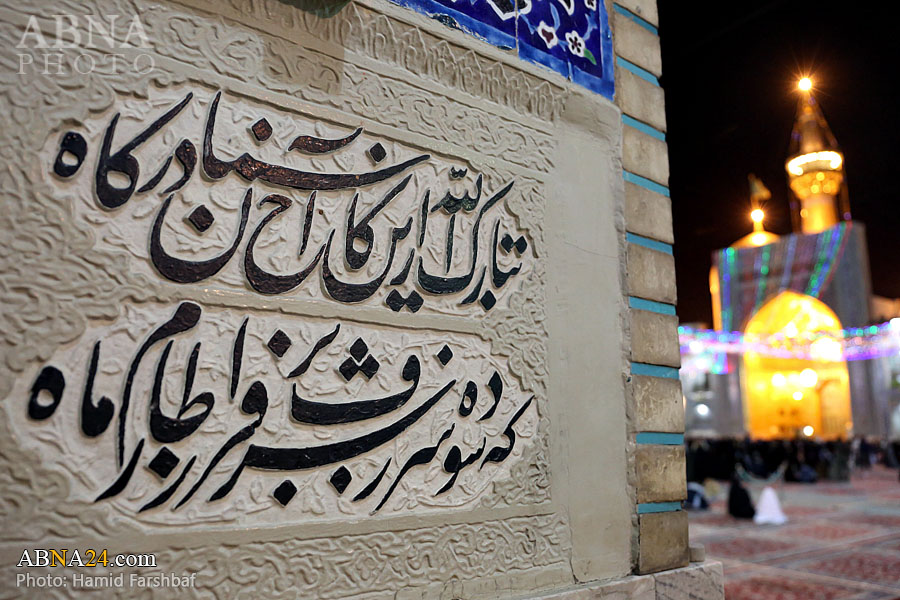 ABNA
PHOTO
تبارک الله ازین کاخ آسمان درگاه
که سوده سر ز شرف بر فراز طارم ماه
ABNA24.com
Photo: Hamid Farshbaf